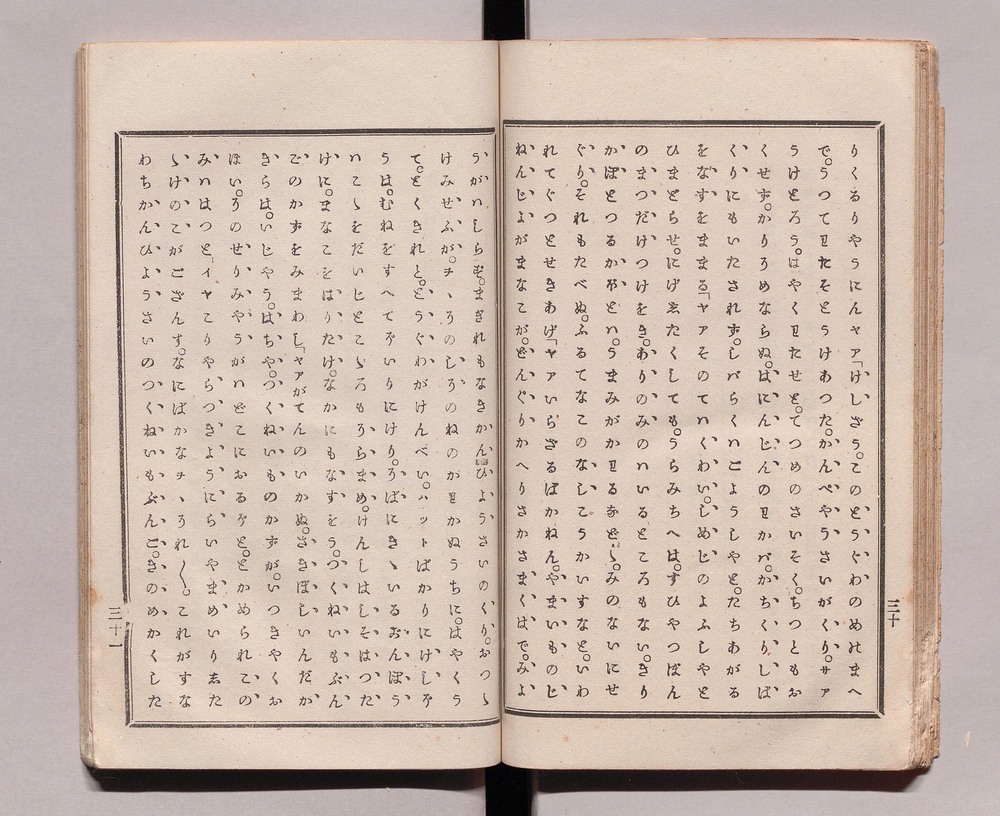 りくるりやうにんヤア「けしざう。このどうぐわのめのまへ
で。うつてヱたそとうけあつた。かんぺやうさいがくり。サア
うけとろう。はやくヱたせと。てつめのさいそく。ちつともお
くせず。かりろめならぬ。はにんじんのヱかバ。かちくりしば
くりにもいたされず。しバらくハごようしやと。たちあがる
をなすをままる「ヤアそのてハくわい。しめじのよふしやと
ひまどらせ。にげゑたくしても。うらみちへは。すひやつぽん
のまつだけつけをき。ありのみのハいるところもない。きり
かぼとつるかやとハ。うまみがかヱるなど〻。みのないにせ
ぐり。それもたべぬ。ふるてなこのなしこうかいすなと。いわ
れてぐつとせきあげ「ヤアいらざるばかねん。やまいものじ
ねんじよがまなこが。どんぐりかへりさかさまくはで。みよ
うがハしらず。まぎれもなきかんびようさいのくり。おつゝ
けみせふが。チヽろのしろのねのがヱかぬうちに。はやくう
て。とくきれと。どうぐわがけんべい。ハットばかりにけしや
うは。むねをすへてやいりにけり。ろばにきヽいるおんぼう
ハこゝをだいじとこゝろもろらまめ。けんしはしそはつた
けに。まなこをはりたけ。なかにもなすをう。つくねいもぶん
ごのかずをみまわし「ヤアがてんのいかぬ。さきぼしいんだか
きらは。いじやう。はちや。つくねいものかずが。いつきやくお
ほい。ろのせりみやうがハどこにおるやと。とかめられこの
みハはつと「イヤこりやらつきようにらいやまめいりゑた
ゝけのこがござんす。なにばかなヂヽろれ〳〵。これがすな
わちかんひようさいのつくねいもぶんご。きのめかくした
三十
三十一